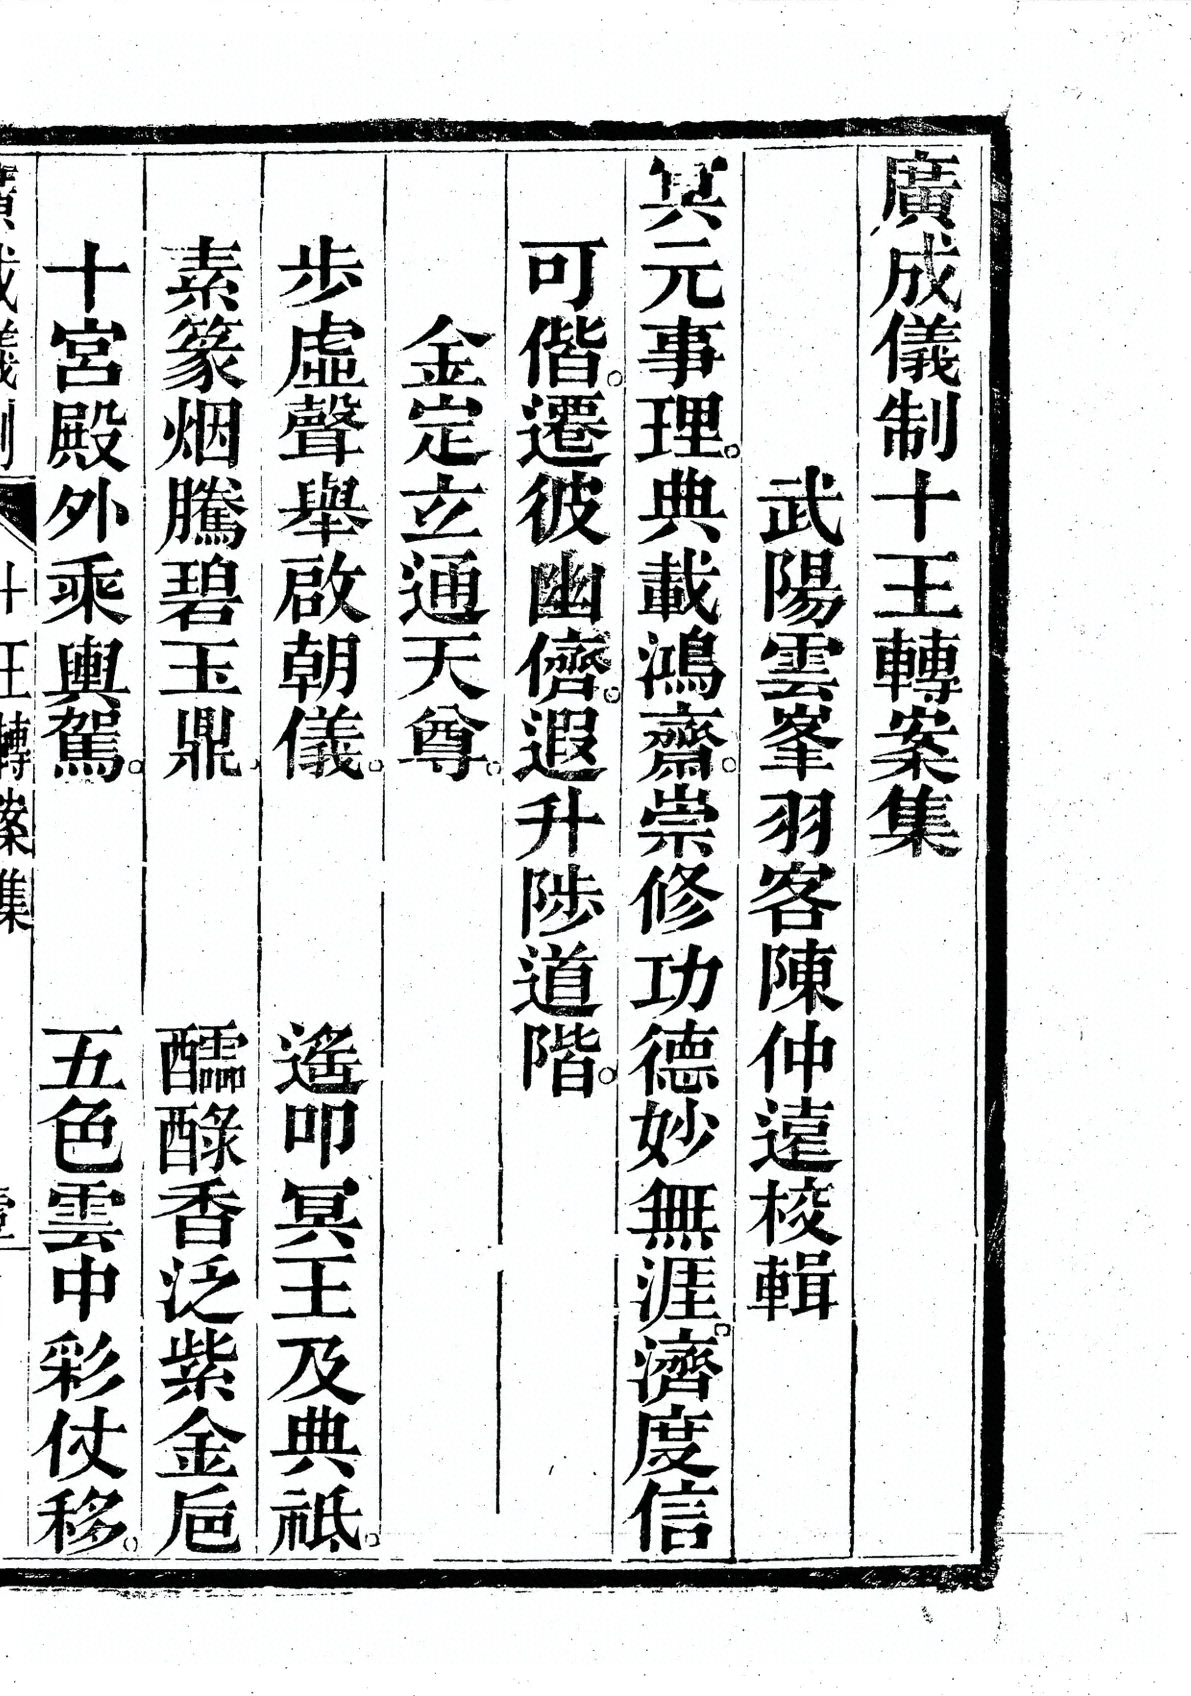 廣成儀制十王轉案集
武陽雲峯羽客陳仲遠校輯
冥元事理。典載鴻齋。崇修功德妙無涯。濟度信
可偕。遷彼幽儕。遐升陟道階。
金定立通天尊。
步虛聲舉啟朝儀。 遙叩冥王及典祗。
素篆烟騰碧玉鼎、 醹醁香泛紫金巵
十宮殿外乘輿駕。 五色雲中彩仗移。
廣成儀制 十王轉案集 壹